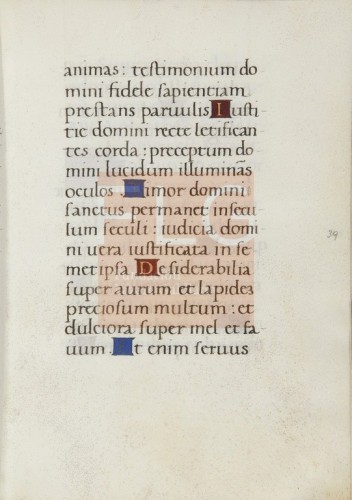 animas: testimonium do
mini fidele sapientiam
prestans paruulis Iusti
tie domini recte letifican
tes corda: preceptum do
mini lucidum illuminãs
oculos. Timor domini
sanctus permanet insecu
lum seculi: iudicia domi
ni uera iustificata in se
metipsa Desiderabilia
super aurum et lapidez
preciosum multum: et
dulciora super mel et fa
uum. Et enim seruus
39